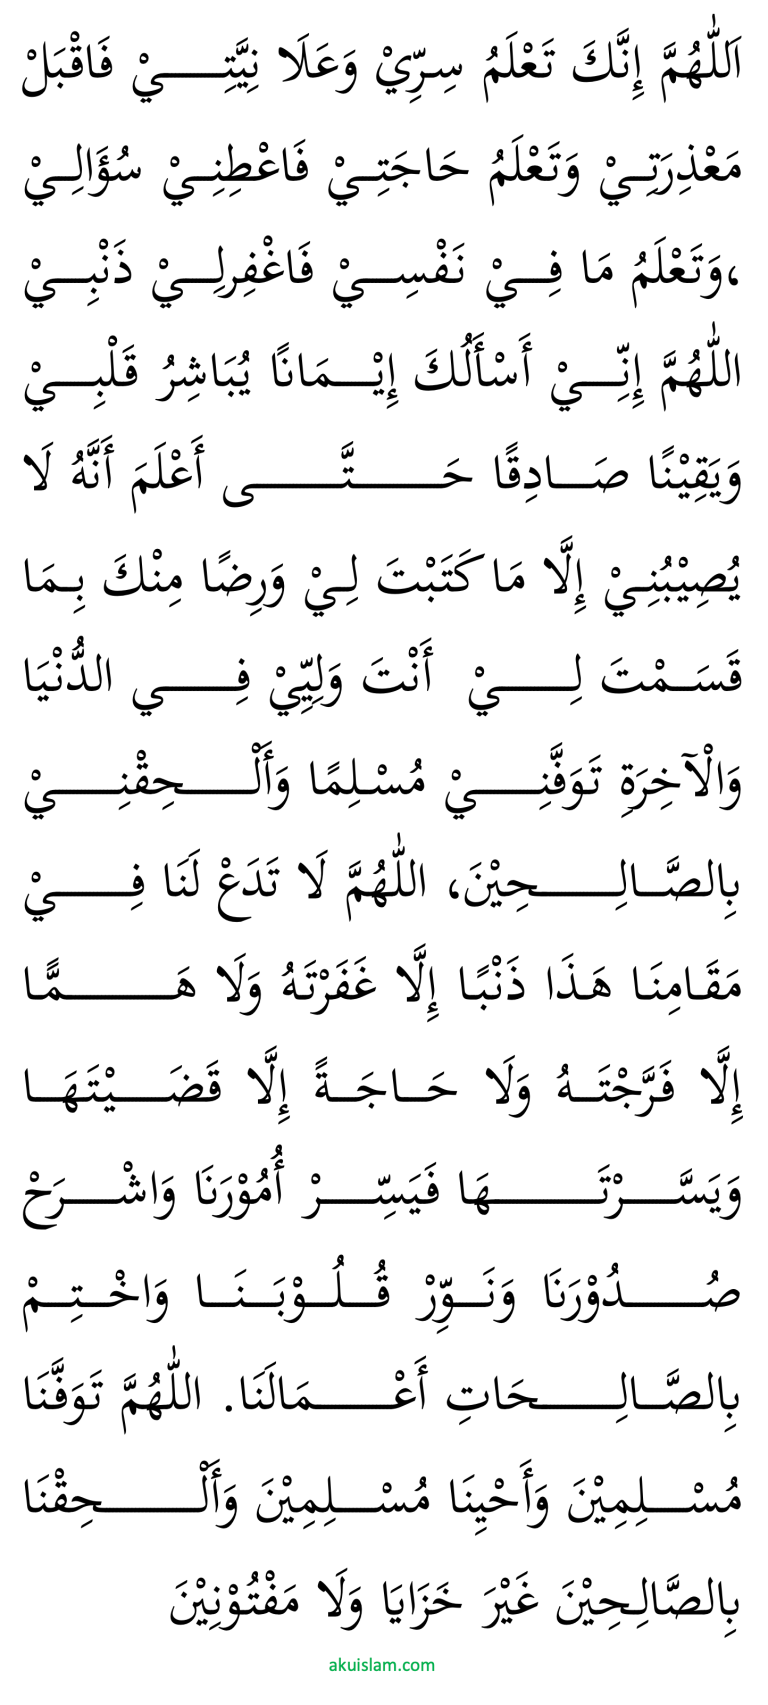 اَللّٰهُمَّ إِنَّكَ تَعْلَمُ سِرِّيْ وَعَلَا نِيَّتِيْ فَاقْبَلْ
مَعْذِرَتِيْ وَتَعْلَمُ حَاجَتِيْ فَاعْطِنِيْ سُؤَالِيْ
،وَتَعْلَمُ مَا فِيْ نَفْسِيْ فَاغْفِرلِيْ ذَنْبِيْ
اللّٰهُمَّ إِنِّيْ أَسْأَلُكَ إِيْمَانًا يُبَاشِرُ قَلْبِيْ
وَيَقِيْنًا صَادِقًا حَتَّى أَعْلَمَ أَنَّهُ لَا
يُصِيْبُنِيْ إِلَّا مَا كَتَبْتَ لِيْ وَرِضًا مِنْكَ بِمَا
قَسَمْتَ لِيْ أَنْتَ وَلِيِّيْ فِي الدُّنْيَا
وَالْآخِرَةِ تَوَفَّنِيْ مُسْلِمًا وَأَلْحِقْنِيْ
بِالصَّالِحِيْنَ، اللّٰهُمَّ لَا تَدَعْ لَنَا فِيْ
مَقَامِنَا هَذَا ذَنْبًا إِلَّا غَفَرْتَهُ وَلَا هَمًّا
إِلَّا فَرَّجْتَهُ وَلَا حَاجَةً إِلَّا قَضَيْتَهَا
وَيَسَّرْتَهَا فَيَسِّرْ أُمُوْرَنَا وَاشْرَحْ
صُدُوْرَنَا وَنَوِّرْ قُلُوْبَنَا وَاخْتِمْ
بِالصَّالِحَاتِ أَعْمَالَنَا. اللّٰهُمَّ تَوَفَّنَا
مُسْلِمِيْنَ وَأَحْيِنَا مُسْلِمِيْنَ وَأَلْحِقْنَا
بِالصَّالِحِيْنَ غَيْرَ خَزَايَا وَلَا مَفْتُوْنِيْنَ
akuislam.com